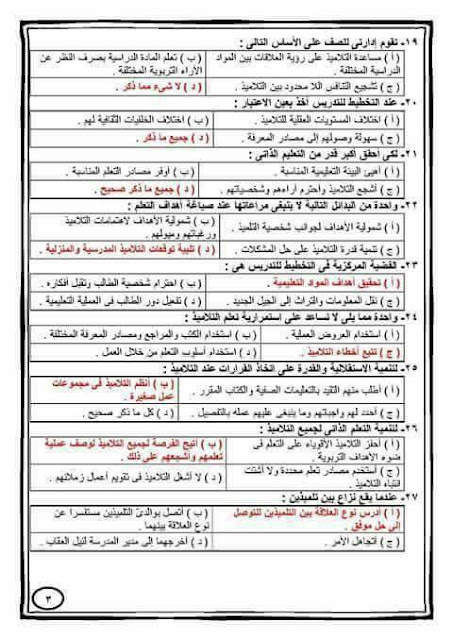 ١٩- تقوم إدارتى للصف على الأساس التالى :
( أ ) مساعدة التلاميذ على رؤية العلاقات بين المواد
الدراسية المختلفة .
( ب ) تعلم المادة الدراسية بصرف النظر عن
الآراء التربوية المختلفة .
( ج ) تشجيع التنافس اللا محدود بين التلاميذ .
( د ) لا شىء مما ذكر .
٢٠- عند التخطيط للتدريس آخذ بعين الاعتبار :
( أ ) اختلاف المستويات العقلية للتلاميذ .
( ب ) اختلاف الخلفيات الثقافية لهم .
( ج ) سهولة وصولهم إلى مصادر المعرفة .
( د ) جميع ما ذكر .
٢١- لكى أحقق أكبر قدر من التعليم الذاتى :
( أ ) أهيئ البيئة التعليمية المناسبة .
( ب ) أوفر مصادر التعلم المناسبة .
( ج ) أشجع التلاميذ وأحترم آراءهم وشخصياتهم .
( د ) جميع ما ذكر صحيح .
٢٢- واحدة من البدائل التالية لا ينبغى مراعاتها عند صياغة أهداف التعلم :
( أ ) شمولية الأهداف لجوانب شخصية التلميذ .
( ب ) شمولية الأهداف لاهتمامات التلاميذ
ورغباتهم وميولهم .
( ج ) تنمية قدرة التلاميذ على حل المشكلات .
( د ) تلبية توقعات التلاميذ المدرسية والمنزلية .
٢٣- القضية المركزية فى التخطيط للتدريس هى :
( أ ) تحقيق أهداف المواد التعليمية .
( ب ) احترام شخصية الطالب وتقبل أفكاره .
( ج ) نقل المعلومات والتراث إلى الجيل الجديد .
( د ) تفعيل دور الطالب فى العملية التعليمية .
٢٤- واحدة مما يلى لا تساعد على استمرارية تعلم التلاميذ :
( أ ) استخدام العروض العملية .
( ب ) استخدام الكتب والمراجع ومصادر المعرفة المختلفة .
( ج ) تتبع أخطاء التلاميذ .
( د ) استخدام أسلوب التعلم من خلال العمل .
٢٥- لتنمية الاستقلالية والقدرة على اتخاذ القرارات عند التلاميذ :
( أ ) أطلب منهم التقيد بالتعليمات الصفية والكتاب المقرر .
( ب ) أنظم التلاميذ فى مجموعات
عمل صغيرة .
( ج ) أحدد لهم واجباتهم وما ينبغى عليهم عمله بالتفصيل .
( د ) كل ما ذكر صحيح .
٢٦- لتنمية التعلم الذاتى لجميع التلاميذ :
( أ ) أحفز التلاميذ الأقوياء على التعلم فى
ضوء الأهداف التربوية .
( ب ) أتيح الفرصة لجميع التلاميذ لوصف عملية
تعلمهم وأشجعهم على ذلك .
( ج ) أستخدم مصادر تعلم محددة ولا أشتت
انتباه التلاميذ .
( د ) لا أشغل التلاميذ فى تقويم أعمال زملائهم .
٢٧- عندما يقع نزاع بين تلميذين :
( أ ) أدرس نوع العلاقة بين التلميذين للتوصل
إلى حل موفق .
( ب ) أتصل بوالدىّ التلميذين مستفسرا عن
نوع العلاقة بينهما .
( ج ) أتجاهل الأمر .
( د ) أخرجهما إلى مدير المدرسة لنيل العقاب .
٣